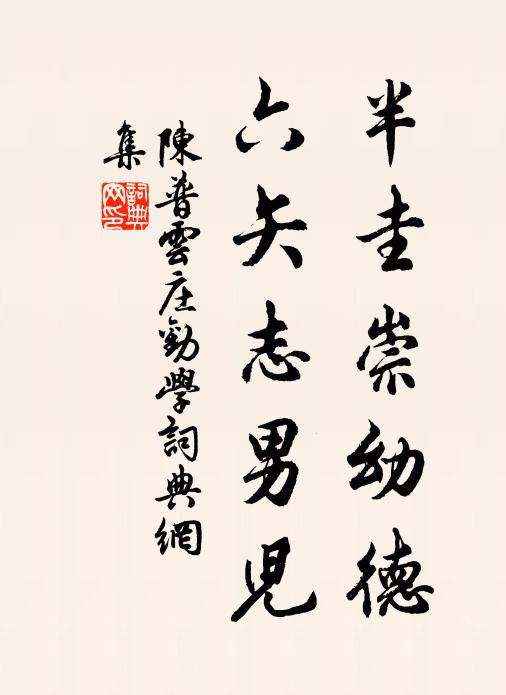 半圭崇幼德
六矢志男兒
陳普雲庄勸學詞典網
集
詞典
网印